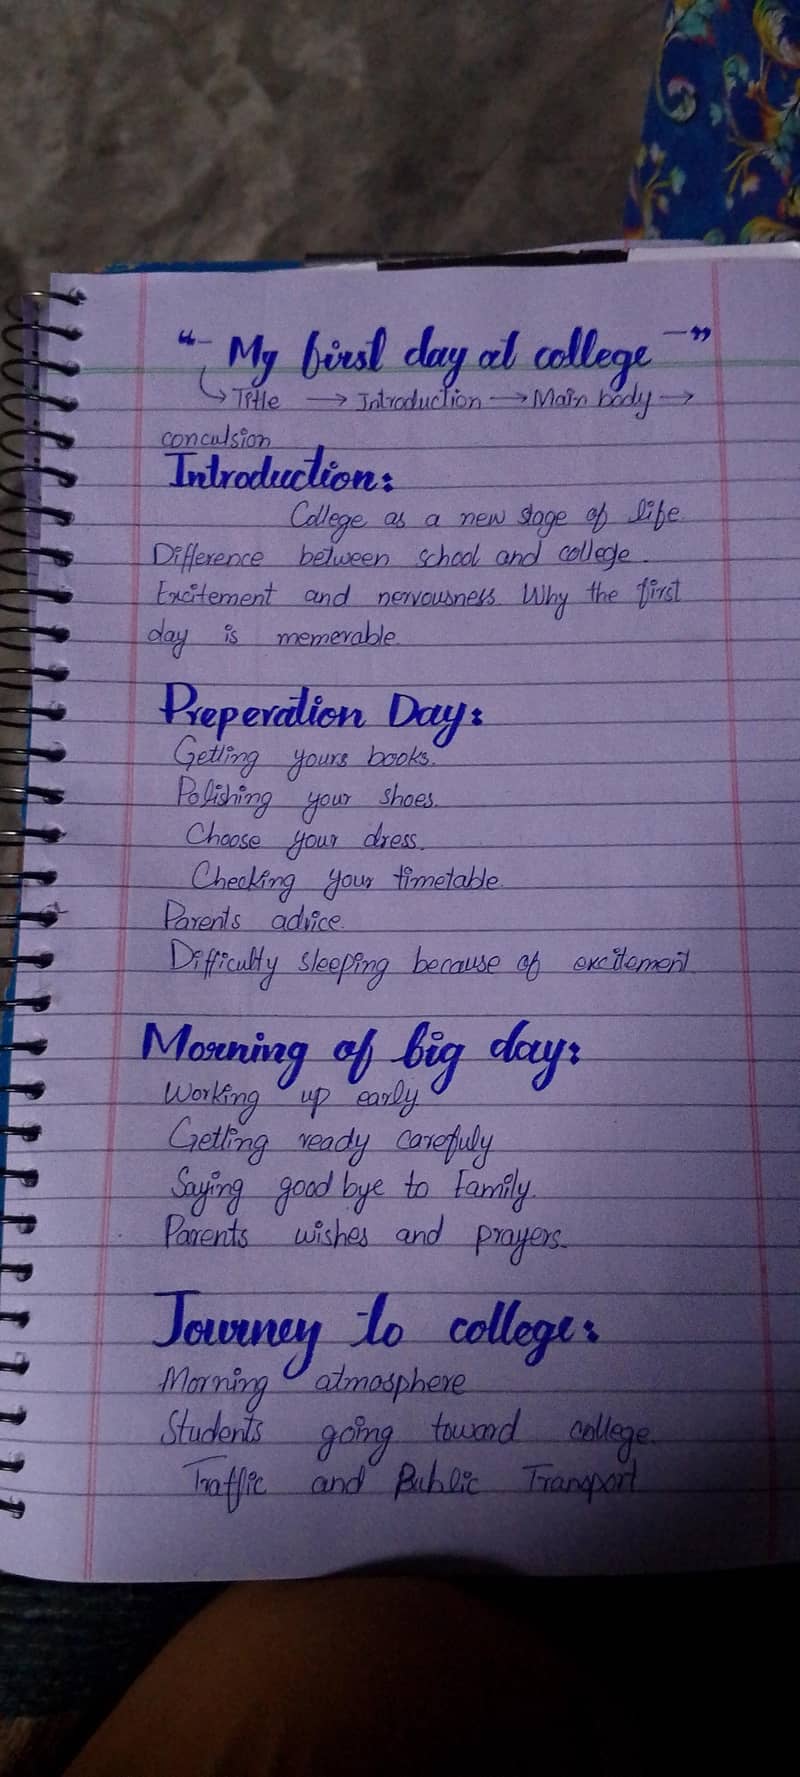 "- My first day at college -"
↳ Title → Introduction → Main body →
conculsion
Introduction:
College as a new stage of life.
Difference between school and college.
Excitement and nervousness Why the first
day is memerable.
Preperation Day:
Getting yours books.
Polishing your shoes.
Choose your dress.
Checking your timetable.
Parents advice.
Difficulty sleeping because of excitement
Morning of big day:
Working up early
Getting ready carefuly
Saying good bye to Family.
Parents wishes and prayers.
Journey to college:
Morning atmosphere
Students going toward college.
Traffic and Public Transport